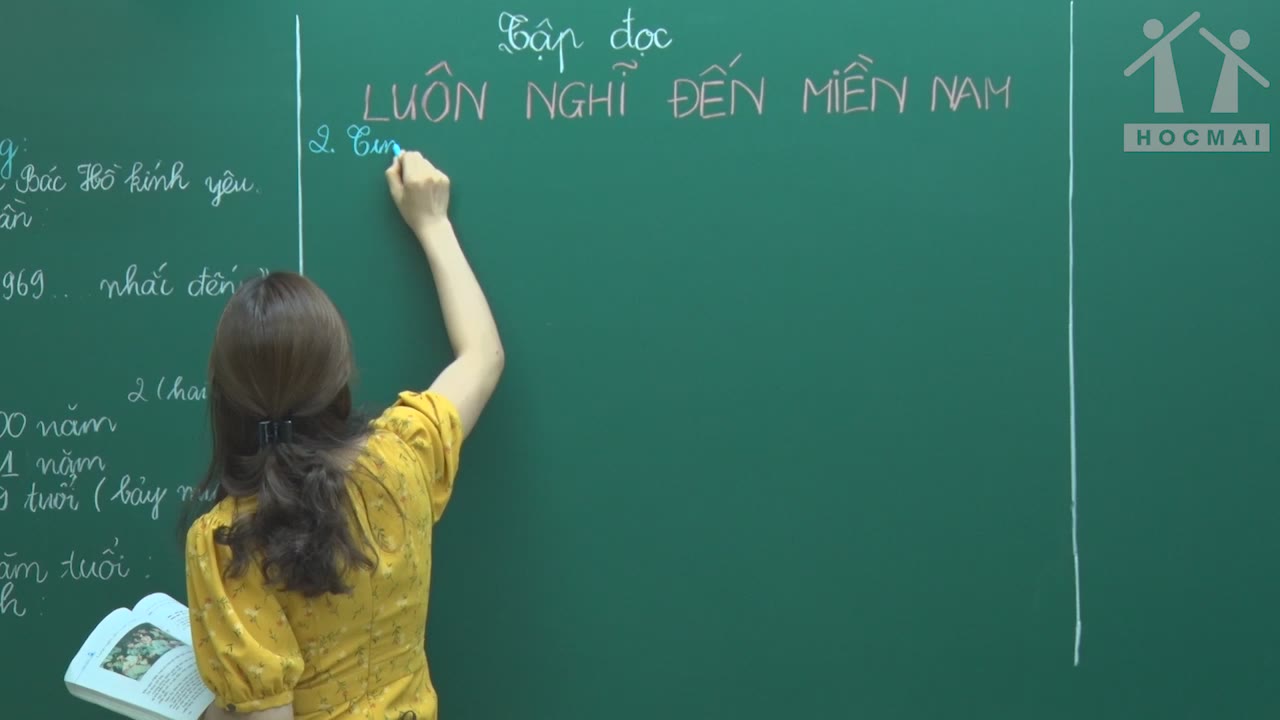 Tập đọc
LUÔN NGHĨ ĐẾN MIỀN NAM
2. Tìm
g:
Bác Hồ kính yêu.
ần:
969... nhắc đến
2 (hai
00 năm
1 năm
9 tuổi (bảy mư
ăm tuổi :
h :
HOCMAI